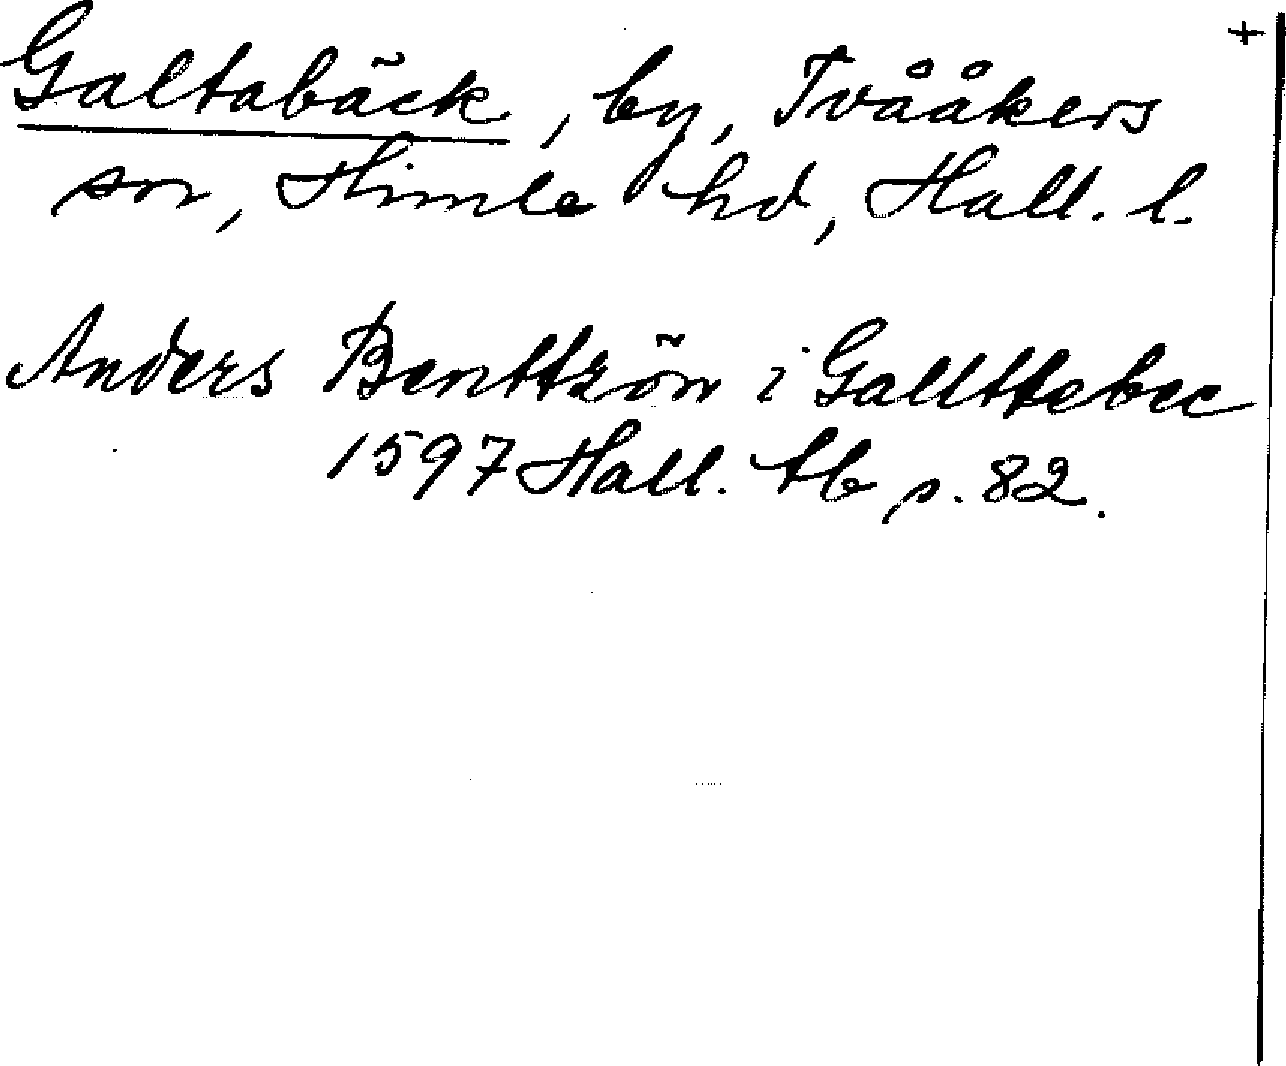 +
Galtabäck, by, Tvååkers
sn, Himle hd, Hall. l.
Anders Benttzön i Gallttebec
1597 Hall. tb s. 82.